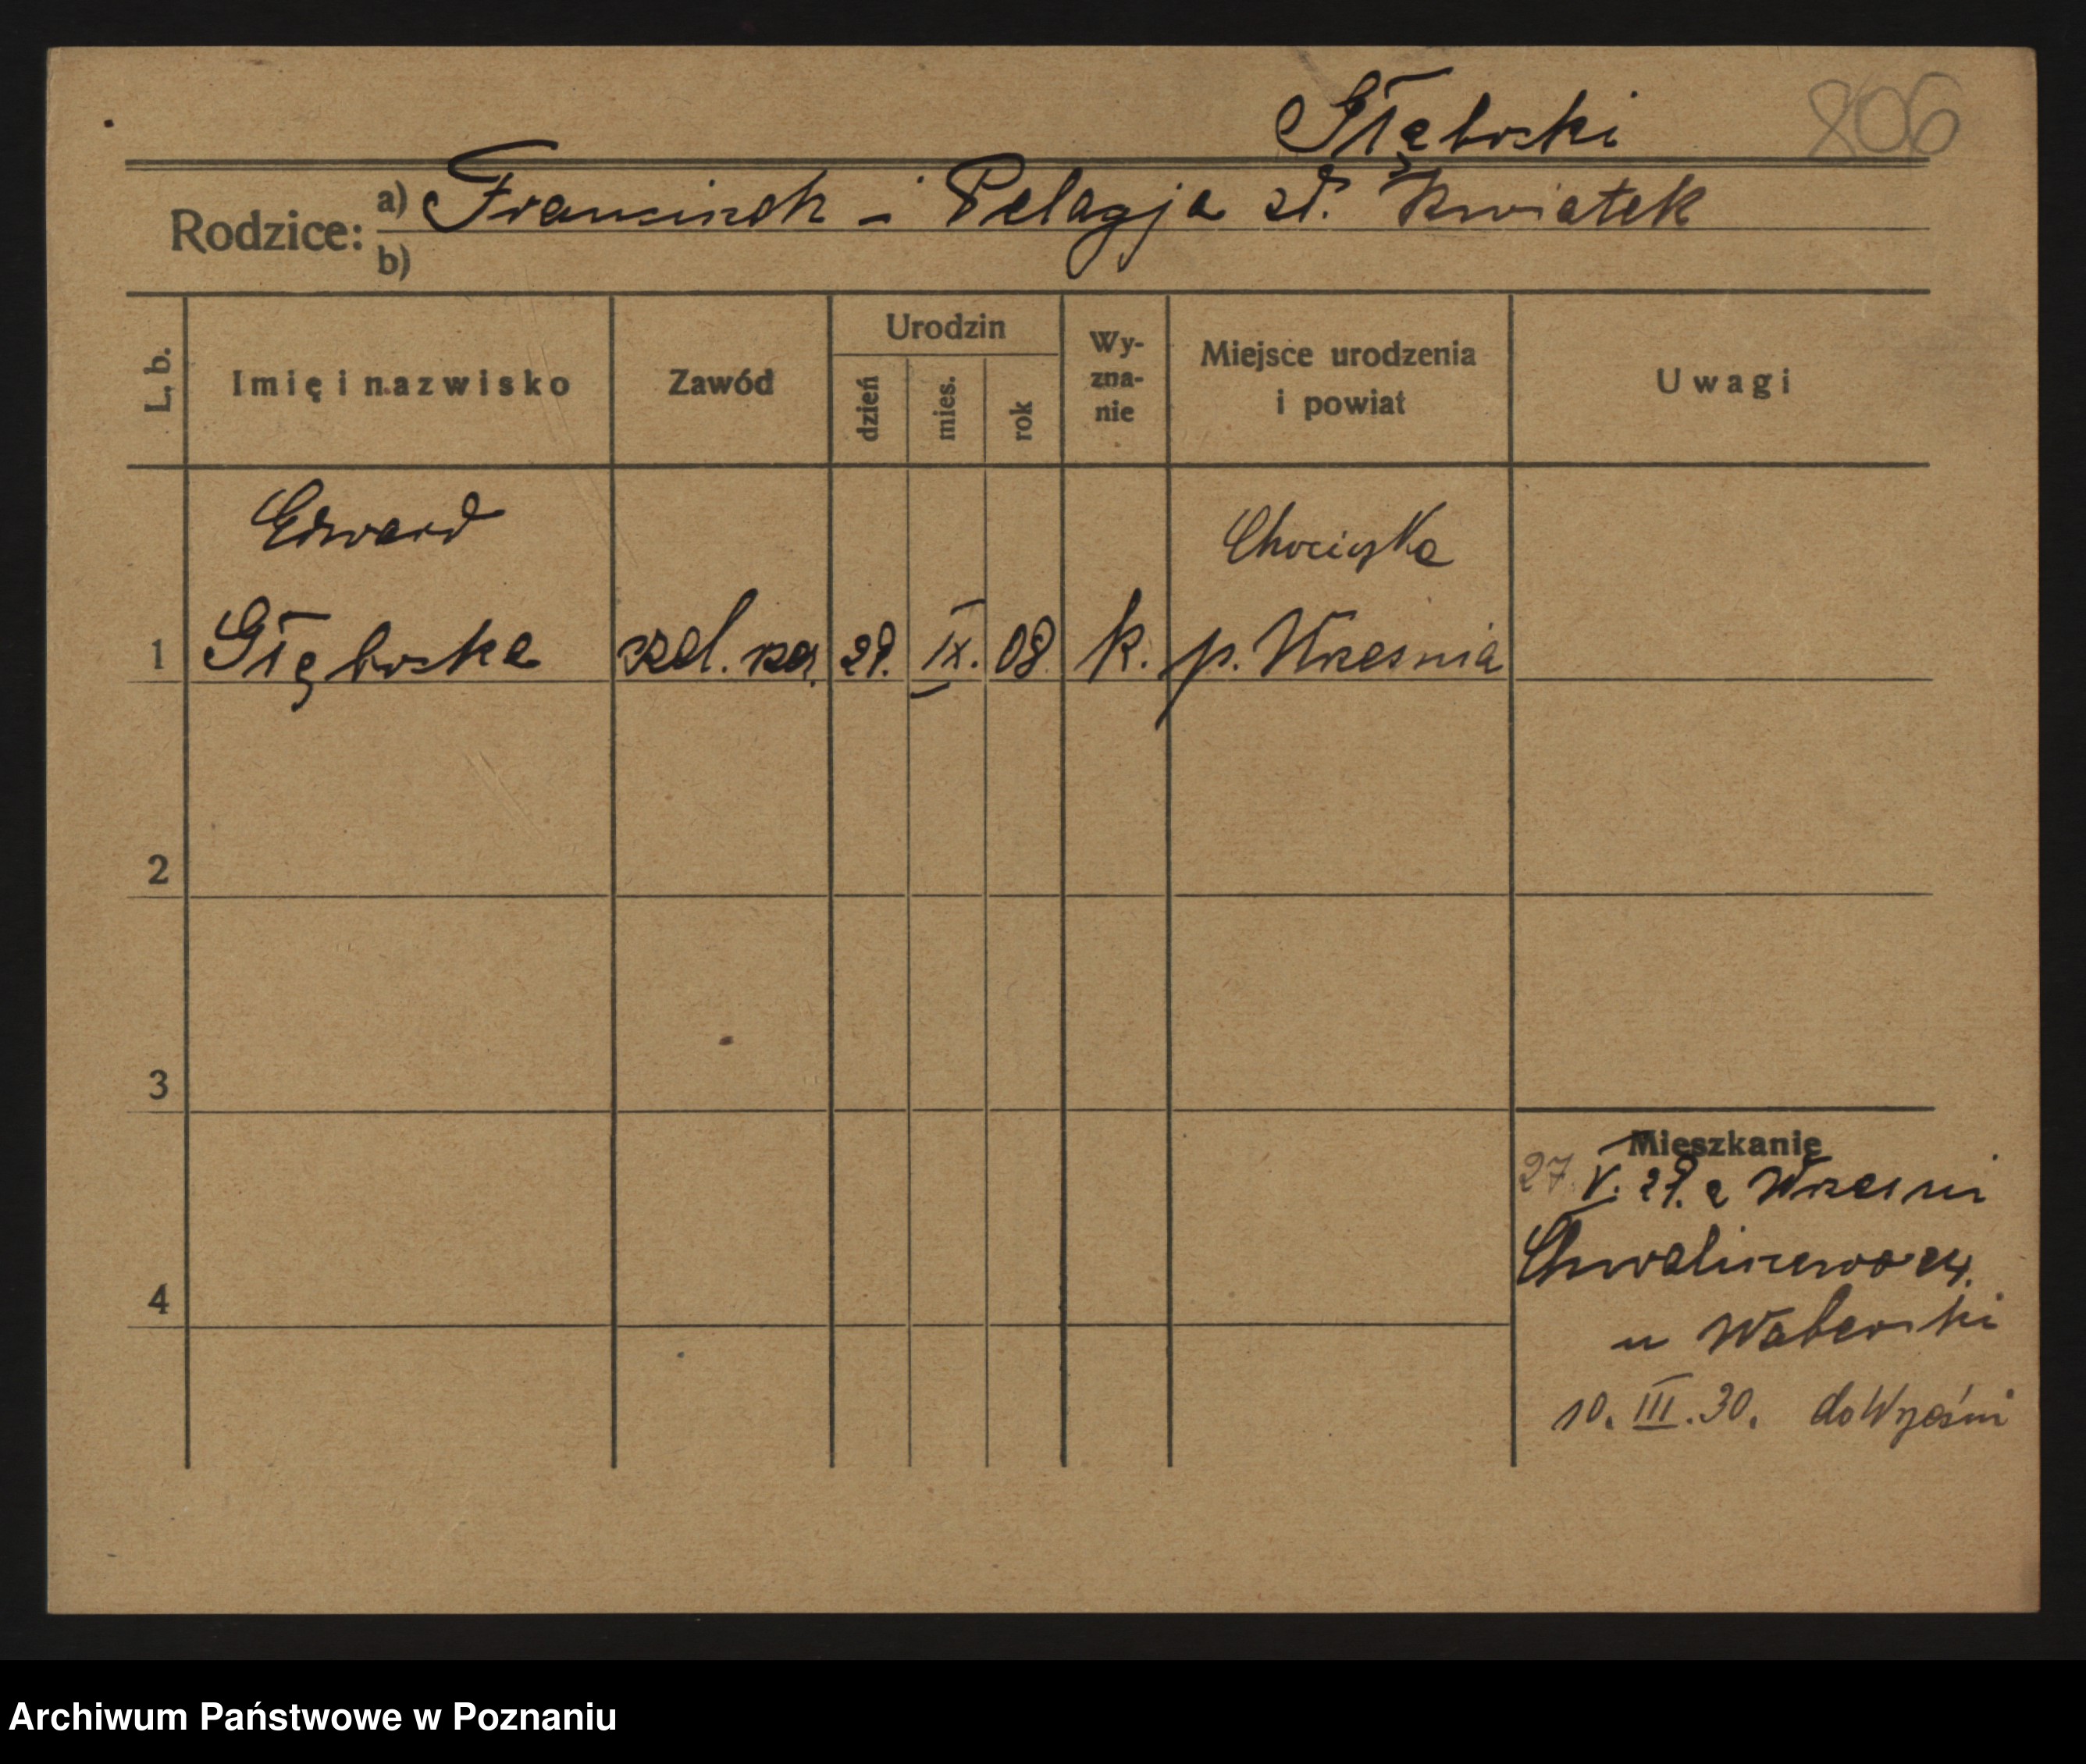 Głęboski 806
Rodzice: a) Franciszek i Pelagja zd. Kwiatek
b)
L. b. Imię i nazwisko Zawód Urodzin dzień mies. rok Wy-zna-nie Miejsce urodzenia i powiat Uwagi
Edward
1 Głęboska czel. rzeź. 29. IX. 08 k. p. Wresnia
2
3
Mieszkanie
27. V. 29. z Wresni
4 Chwaliszewo 24.
u Waberski
10. III. 30. do Wrześni
Archiwum Państwowe w Poznaniu